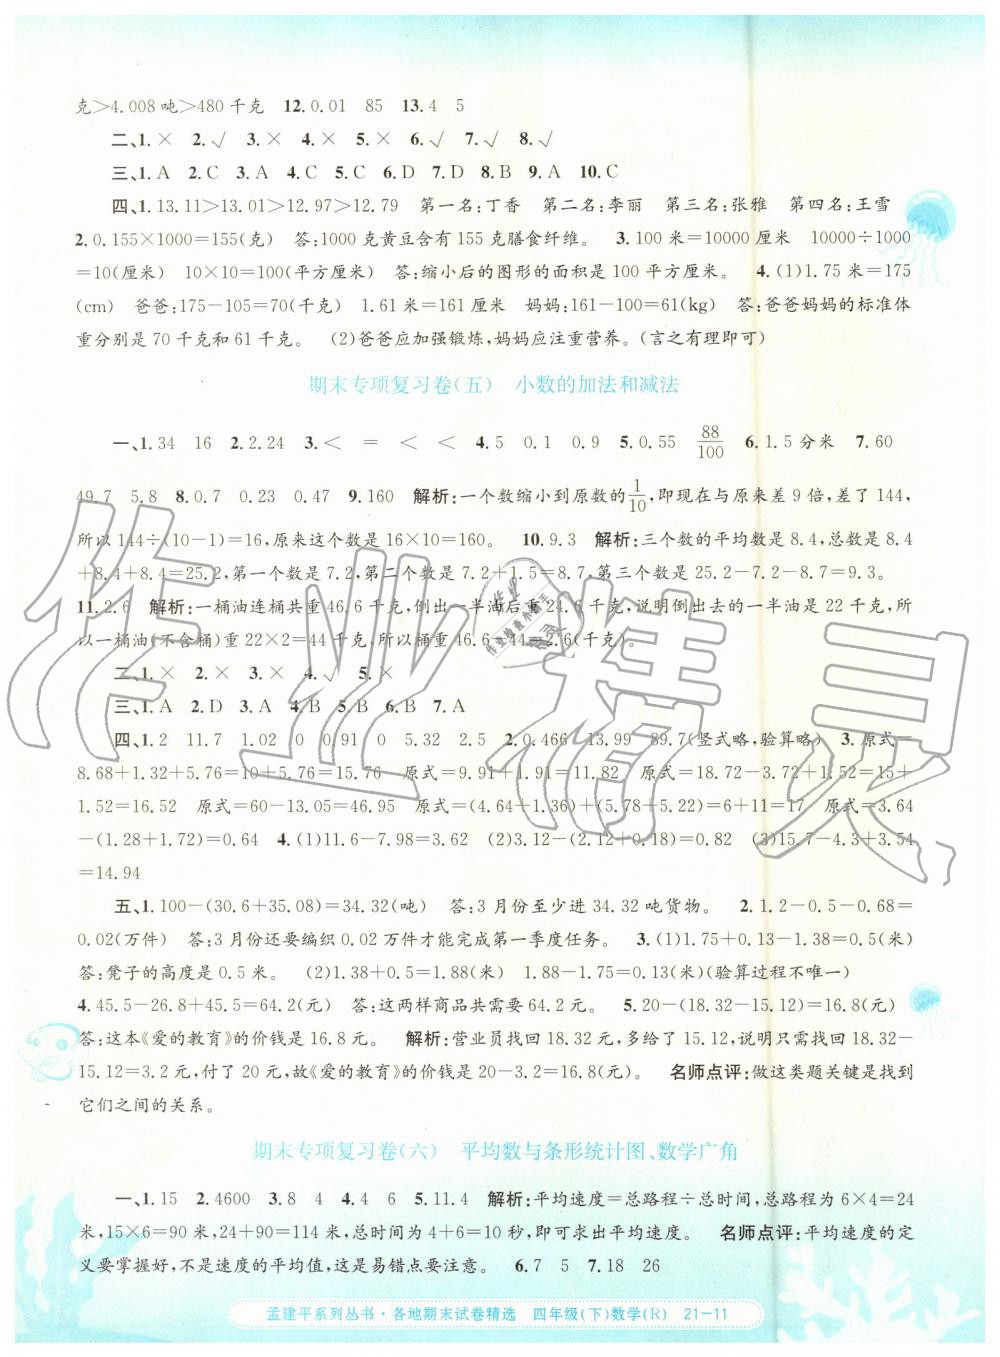 克>4.008吨>480千克 12.0.01 85 13.4 5
二、1.× 2.√ 3.× 4.× 5.× 6.√ 7.√ 8.√
三、1.A 2.C 3.A 4.C 5.C 6.A 7.D 8.B 9.A 10.C
四、1.13.11>13.01>12.97>12.79 第一名:丁香 第二名:李丽 第三名:张雅 第四名:王雪
2.0.155×1000=155(克) 答:1000克黄豆含有155克膳食纤维。 3.100米=10000厘米 10000÷1000
=10(厘米) 10×10=100(平方厘米) 答:缩小后的图形的面积是100平方厘米。 4.(1)1.75米=175
(cm) 爸爸:175-105=70(千克) 1.61米=161厘米 妈妈:161-100=61(kg) 答:爸爸妈妈的标准体
重分别是70千克和61千克。 (2)爸爸应加强锻炼,妈妈应注重营养。(言之有理即可)
期末专项复习卷(五) 小数的加法和减法
一、1.34 16 2.2.24 3.< = < < 4.5 0.1 0.9 5.0.55 88/100 6.1.5分米 7.60
49.7 5.8 8.0.7 0.23 0.47 9.160 解析:一个数缩小到原数的1/10,即现在与原来差9倍,差了144,
所以144÷(10-1)=16,原来这个数是16×10=160。 10.9.3 解析:三个数的平均数是8.4,总数是8.4
+8.4+8.4=25.2,第一个数是7.2,第二个数是7.2+1.5=8.7,第三个数是25.2-7.2-8.7=9.3。
11.2.6 解析:一桶油连桶共重46.6千克,倒出一半油后重24.6千克,说明倒出去的一半油是22千克,所
以一桶油(不含桶)重22×2=44千克,所以桶重46.6-44=2.6(千克)。
二、1.× 2.× 3.× 4.√ 5.×
三、1.A 2.D 3.A 4.B 5.B 6.B 7.A
四、1.2 11.7 1.02 0 0.91 0 5.32 2.5 2.0.466 13.99 89.7(竖式略,验算略) 3.原式=
8.68+1.32+5.76=10+5.76=15.76 原式=9.91+1.91=11.82 原式=18.72-3.72+1.52=15+
1.52=16.52 原式=60-13.05=46.95 原式=(4.64+1.36)+(5.78+5.22)=6+11=17 原式=3.64
-(1.28+1.72)=0.64 4.(1)11.6-7.98=3.62 (2)3.12-(2.12+0.18)=0.82 (3)15.7-4.3+3.54
=14.94
五、1.100-(30.6+35.08)=34.32(吨) 答:3月份至少进34.32吨货物。 2.1.2-0.5-0.68=
0.02(万件) 答:3月份还要编织0.02万件才能完成第一季度任务。 3.(1)1.75+0.13-1.38=0.5(米)
答:凳子的高度是0.5米。 (2)1.38+0.5=1.88(米) 1.88-1.75=0.13(米)(验算过程不唯一)
4.45.5-26.8+45.5=64.2(元) 答:这两样商品共需要64.2元。 5.20-(18.32-15.12)=16.8(元)
答:这本《爱的教育》的价钱是16.8元。 解析:营业员找回18.32元,多给了15.12,说明只要找回18.32-
15.12=3.2元,付了20元,故《爱的教育》的价钱是20-3.2=16.8(元)。 名师点评:做这类题关键是找到
它们之间的关系。
期末专项复习卷(六) 平均数与条形统计图、数学广角
一、1.15 2.4600 3.8 4 4.4 6 5.11.4 解析:平均速度=总路程÷总时间,总路程为6×4=24
米,15×6=90米,24+90=114米,总时间为4+6=10秒,即可求出平均速度。 名师点评:平均速度的定
义要掌握好,不是速度的平均值,这是易错点要注意。 6.7 5 7.18 26
孟建平系列丛书·各地期末试卷精选 四年级(下)数学(R) 21-11
作业精灵